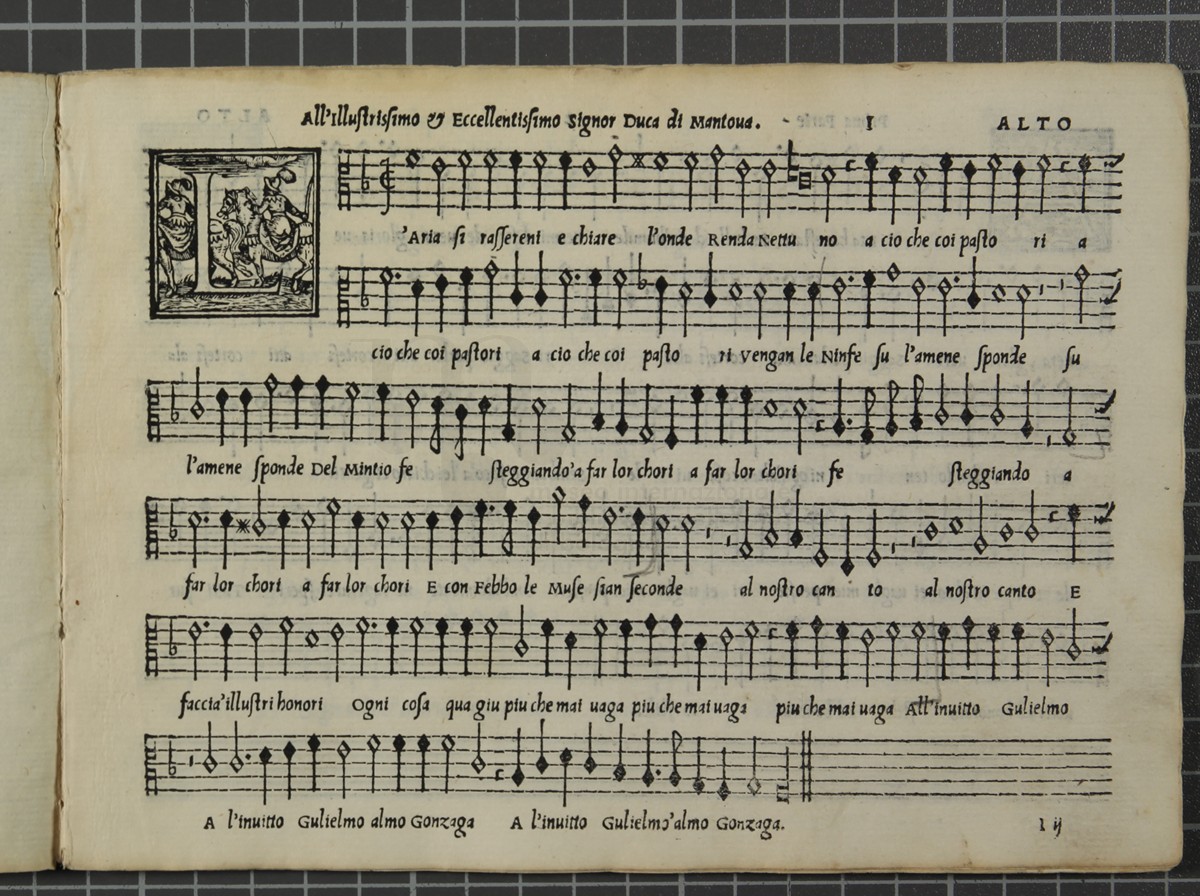 All'Illustrissimo & Eccellentissimo Signor Duca di Mantoua. 1 ALTO
L'Aria si rassereni e chiare l'onde Renda Nettu no a cio che coi pasto ri a
cio che coi pastori a cio che coi pasto ri Vengan le Ninfe su l'amene sponde su
l'amene sponde Del Mintio fe steggiando'a far lor chori a far lor chori fe steggiando a
far lor chori a far lor chori E con Febbo le Muse sian seconde al nostro can to al nostro canto E
faccia'illustri honori Ogni cosa qua giu piu che mai uaga piu che mai uaga piu che mai uaga All'inuitto Gulielmo
A l'inuitto Gulielmo almo Gonzaga A l'inuitto Gulielmo'almo Gonzaga.
I ij